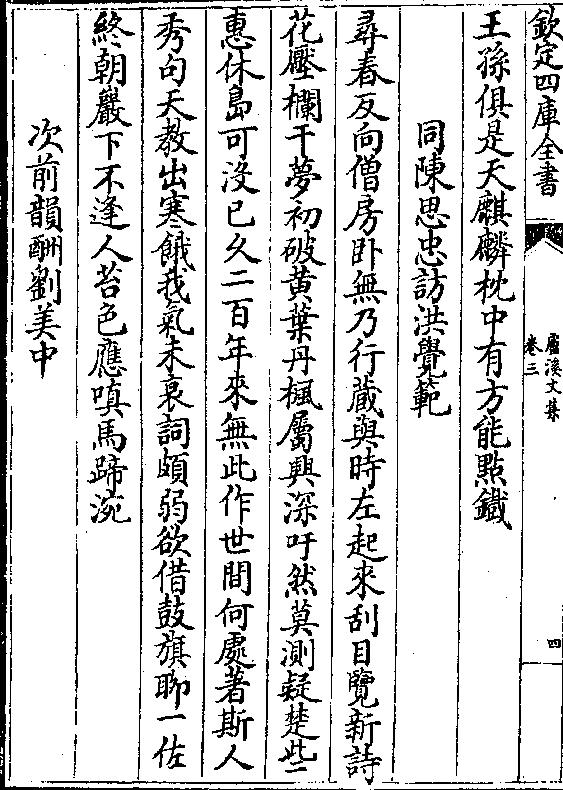 欽定四庫全書
盧溪文集
卷三
四
王孫俱是天麒麟枕中有方能點鐵
同陳思忠訪洪覺範
尋春反向僧房卧無乃行藏與時左起來刮目覽新詩
花壓欄干夢初破黄葉丹楓屬興深吁然莫測疑楚些
惠休島可没已久二百年來無此作世間何處著斯人
秀句天教出寒餓我氣未衰詞頗弱欲借鼓旗聊一佐
終朝巖下不逢人苔色應嗔馬蹄涴
次前韻酬劉美中